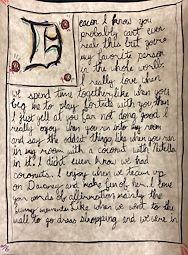 eacon I know you
probably can't even
read this but you're
my favorite person
in the whole world.
I really love when
we spend time together. like when you
beg me to play fortnite with you then
I just yell at you for not doing good. I
really enjoy when you run into my room
and say the oddest things like when you ran in
my room with a coconut with Nutella
in it. I didn't even know we had
coconuts. I enjoy when we team up
on Daveney and make fun of her. I love
your words of affirmation mainly the
funny when we went to the
mall to go dress shopping and we were in